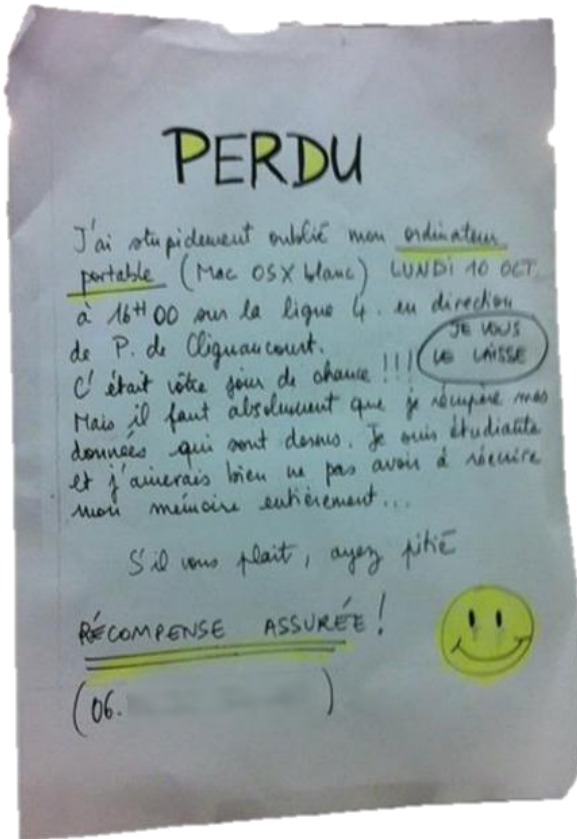 PERDU
J'ai stupidement oublié mon ordinateur
portable (Mac OSX blanc) LUNDI 10 OCT.
à 16H00 sur la ligne 4. en direction
de P. de Clignancourt.
C'était vôtre jour de chance !!!
JE VOUS
LE LAISSE
Mais il faut absolument que je récupère mes
données qui sont dessus. Je suis étudiante
et j'aimerais bien ne pas avoir à réécrire
mon mémoire entièrement...
S'il vous plait, ayez pitié
RÉCOMPENSE ASSURÉE !
(06. )